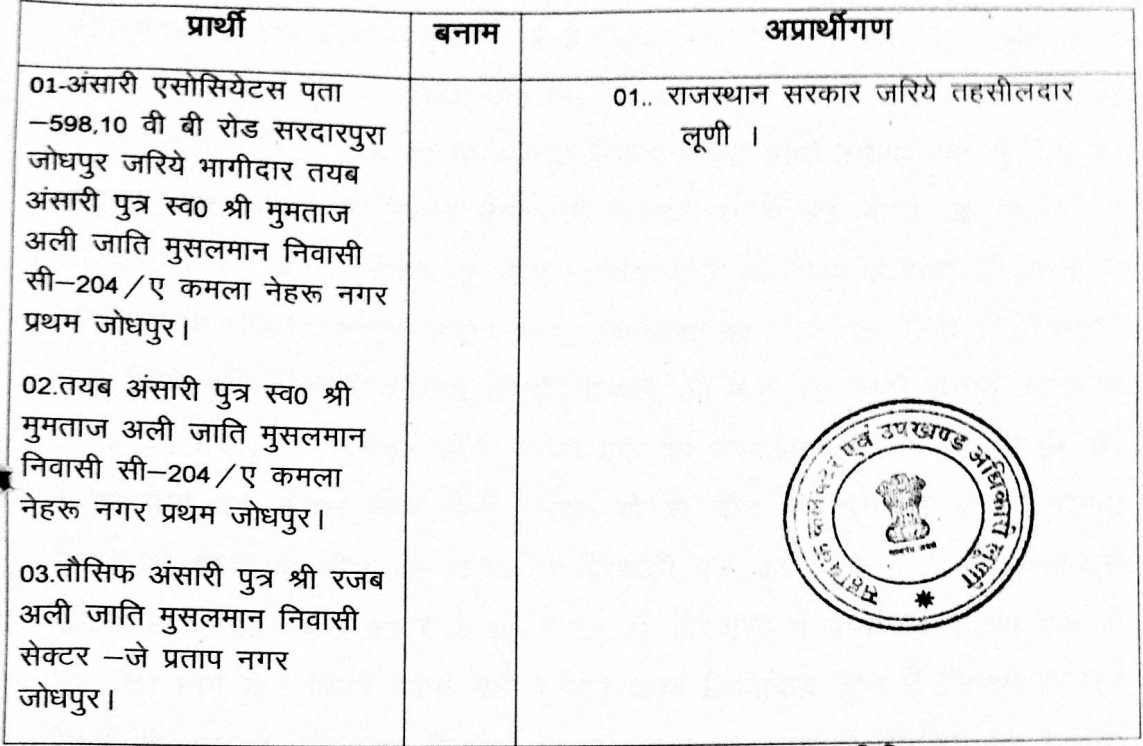 प्रार्थी बनाम अप्रार्थीगण
01-अंसारी एसोसियेटस पता
–598,10 वी बी रोड सरदारपुरा
जोधपुर जरिये भागीदार तयब
अंसारी पुत्र स्व0 श्री मुमताज
अली जाति मुसलमान निवासी
सी–204/ए कमला नेहरू नगर
प्रथम जोधपुर।
02.तयब अंसारी पुत्र स्व0 श्री
मुमताज अली जाति मुसलमान
निवासी सी–204/ए कमला
नेहरू नगर प्रथम जोधपुर।
03.तौसिफ अंसारी पुत्र श्री रजब
अली जाति मुसलमान निवासी
सेक्टर –जे प्रताप नगर
जोधपुर।
01.. राजस्थान सरकार जरिये तहसीलदार
लूणी ।
सहायक कलेक्टर एवं उपखण्ड अधिकारी लूणी
सत्यमेव जयते